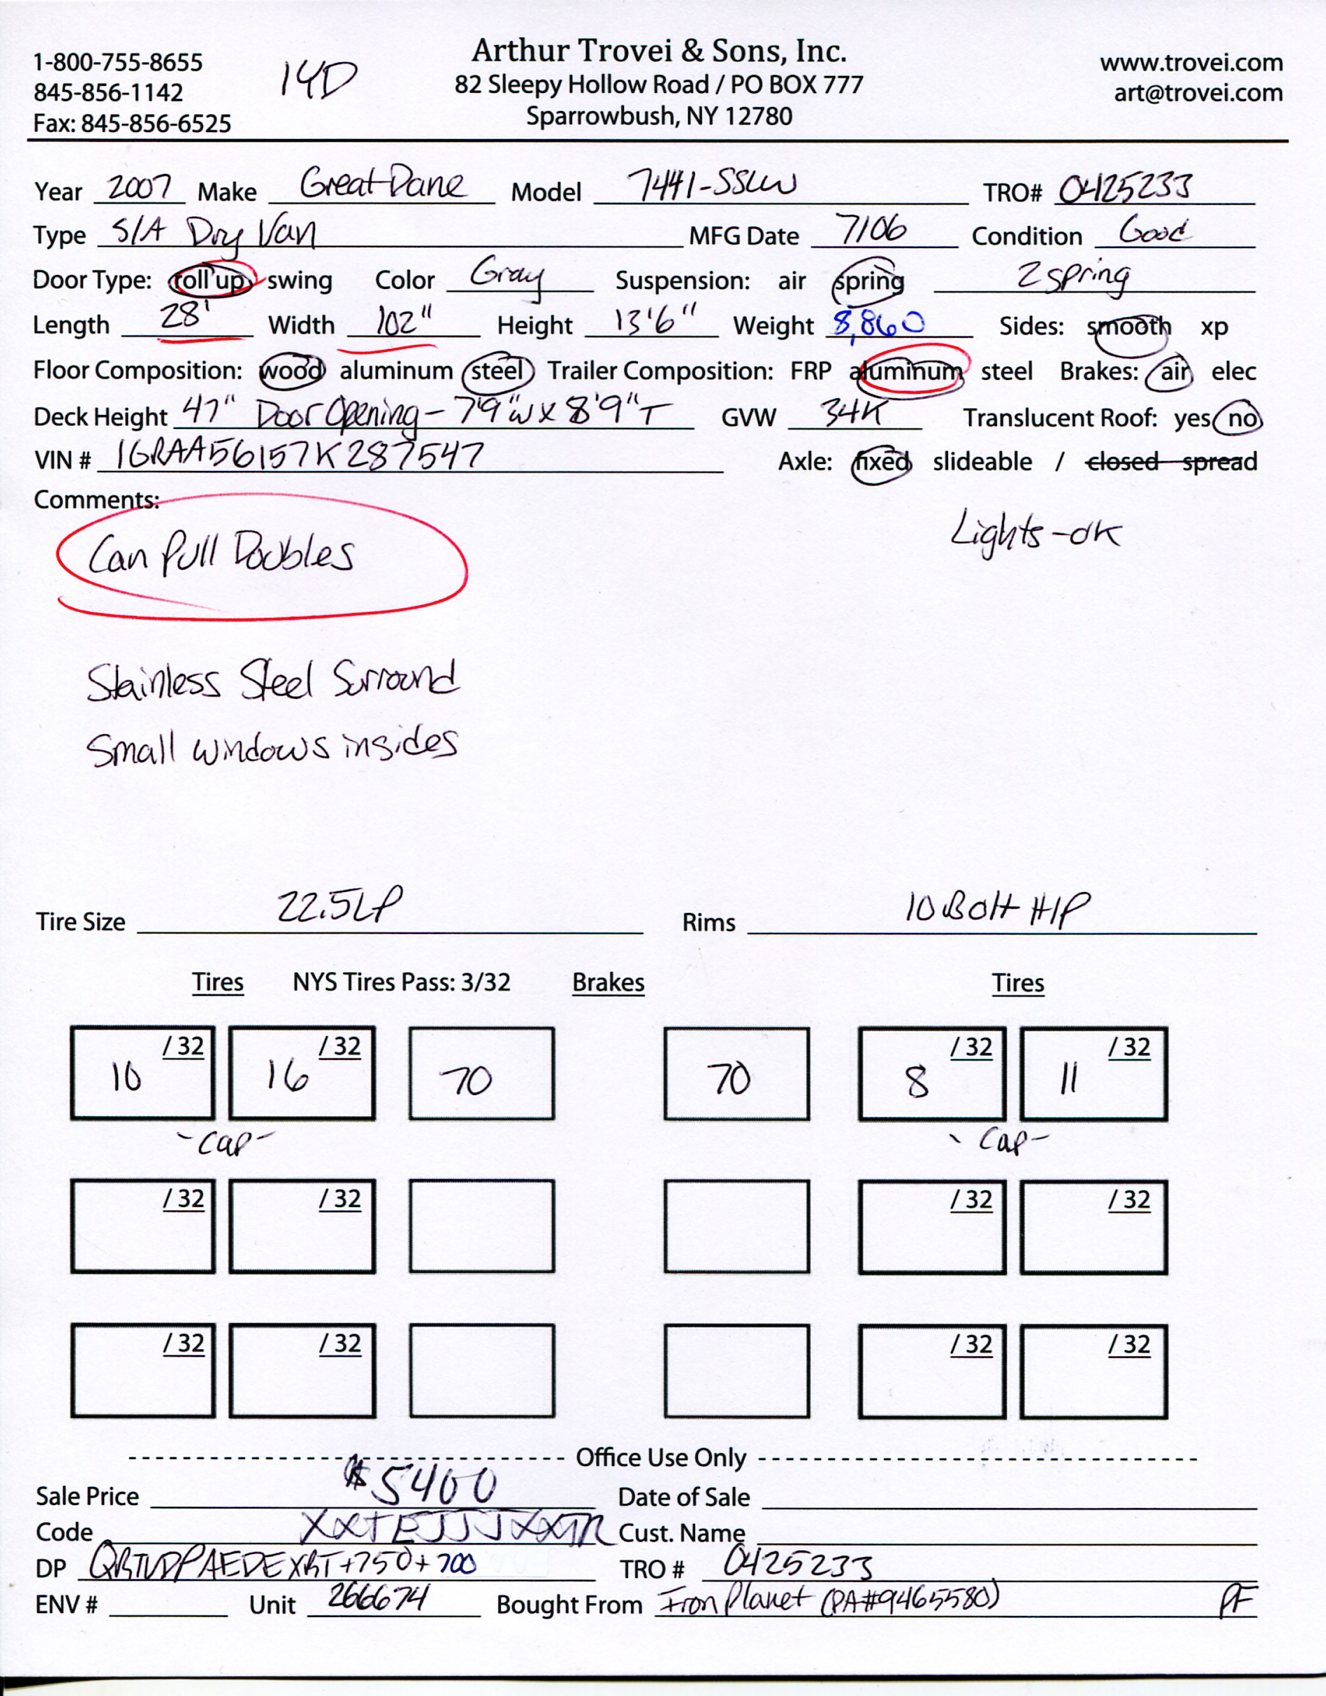 Arthur Trovei & Sons, Inc.
1-800-755-8655 14D 82 Sleepy Hollow Road / PO BOX 777 www.trovei.com
845-856-1142 Sparrowbush, NY 12780 art@trovei.com
Fax: 845-856-6525
Year 2007 Make Great Dane Model 7441-SSLW TRO# 0425233
Type S/A Dry Van MFG Date 7/06 Condition Good
Door Type: roll up swing Color Gray Suspension: air spring 2 spring
Length 28' Width 102" Height 13'6" Weight 8,860 Sides: smooth xp
Floor Composition: wood aluminum steel Trailer Composition: FRP aluminum steel Brakes: air elec
Deck Height 47" Door Opening - 7'9"W x 8'9"T GVW 34K Translucent Roof: yes no
VIN # 1GRAA56157K287547 Axle: fixed slideable / closed spread
Comments:
Can Pull Doubles Lights-OK
Stainless Steel Surround
Small windows in sides
Tire Size 22.5LP Rims 10 Bolt H/P
Tires NYS Tires Pass: 3/32 Brakes Tires
10 /32 16 /32 70 70 8 /32 11 /32
-Cap- -Cap-
/32 /32 /32 /32
/32 /32 /32 /32
Office Use Only
Sale Price $5400 Date of Sale
Code Cust. Name
DP +750+700 TRO # 0425233
ENV # Unit 266674 Bought From Iron Planet (PA#9465580) PF